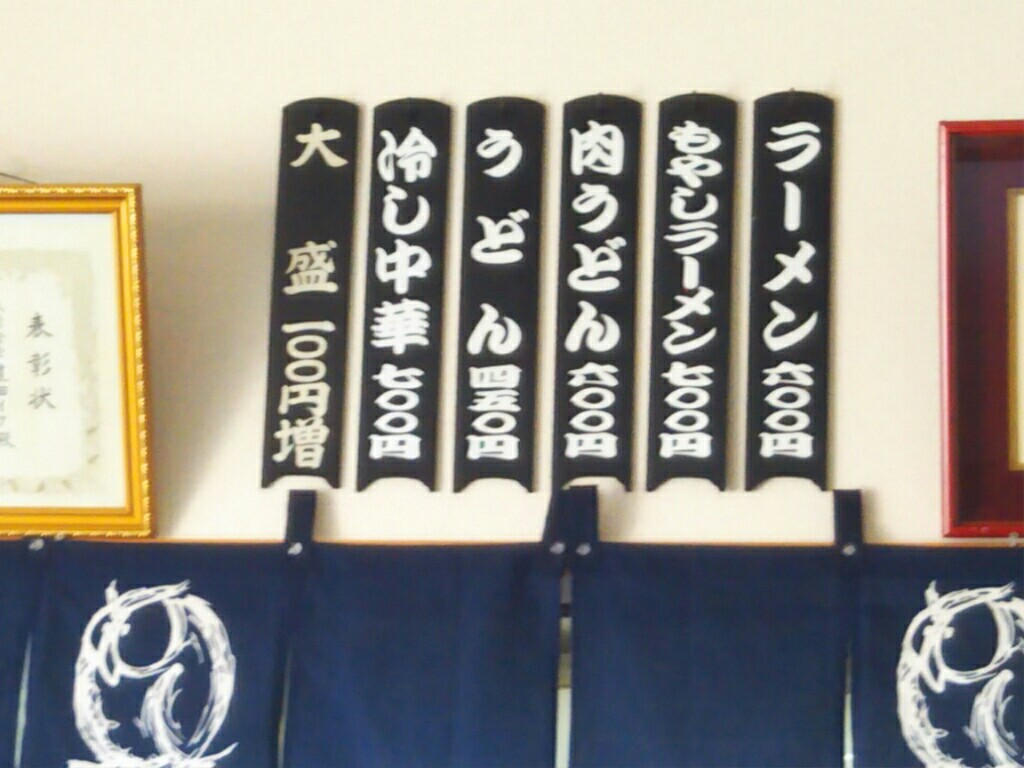 ラーメン 六〇〇円
もやしラーメン 七〇〇円
肉うどん 六〇〇円
うどん 四五〇円
冷し中華 七〇〇円
大盛 一〇〇円増
表彰状